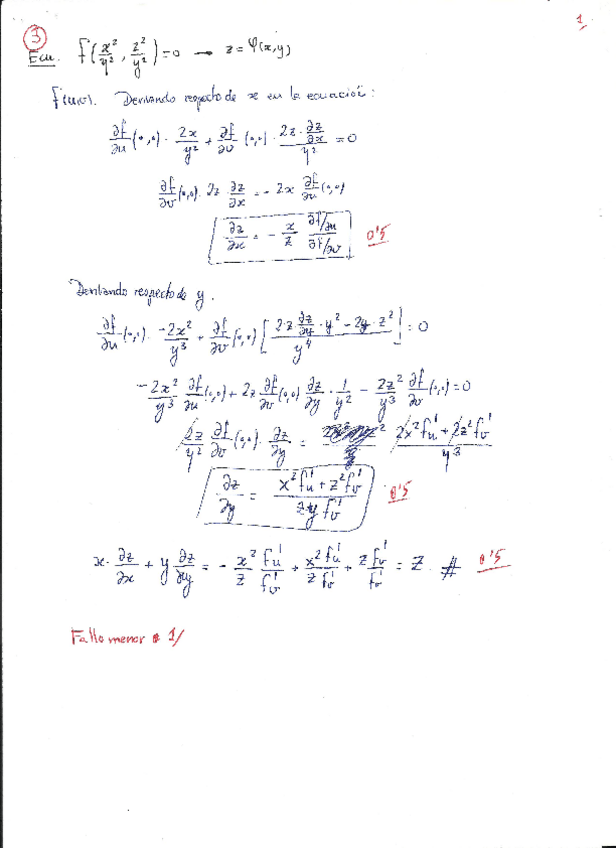 1
③
Ecu. f(x²/y², z²/y²) = 0 → z = φ(x,y)
f(u,v). Derivando respecto de x en la ecuación:
∂f/∂u (·,·) · 2x/y² + ∂f/∂v (·,·) · (2z · ∂z/∂x)/y² = 0
∂f/∂v (·,·) · 2z ∂z/∂x = - 2x ∂f/∂u (·,·)
∂z/∂x = - x/z (∂f/∂u)/(∂f/∂v) 0'5
Derivando respecto de y.
∂f/∂u (·,·) · -2x²/y³ + ∂f/∂v (·,·) [(2·z ∂z/∂y · y² - 2y · z²)/y⁴] = 0
-2x²/y³ ∂f/∂u (·,·) + 2z ∂f/∂v (·,·) ∂z/∂y · 1/y² - 2z²/y³ ∂f/∂v (·,·) = 0
2z/y² ∂f/∂v (·,·) · ∂z/∂y = (2x² f'u + 2z² f'v)/y³
∂z/∂y = (x² f'u + z² f'v)/(z y f'v) 0'5
x · ∂z/∂x + y ∂z/∂y = - x²/z f'u/f'v + x² f'u/(z f'v) + z f'v/f'v = z. # 0'5
Fallo menor 1/